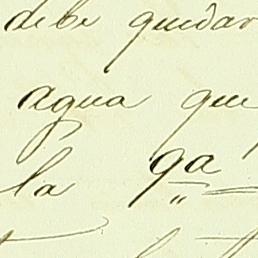 debe quedar
agua que
la 9a